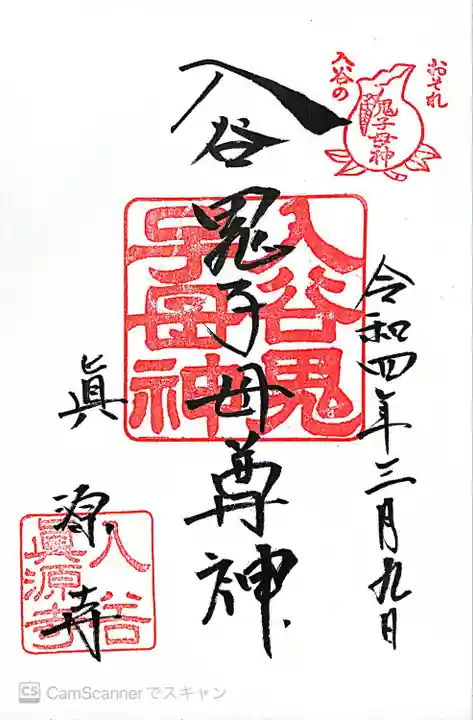 おそれ
入谷の
鬼子母神
令和四年三月九日
入谷鬼子母尊神
入谷鬼
子母神
眞源寺
入谷
眞源寺
CS CamScannerでスキャン